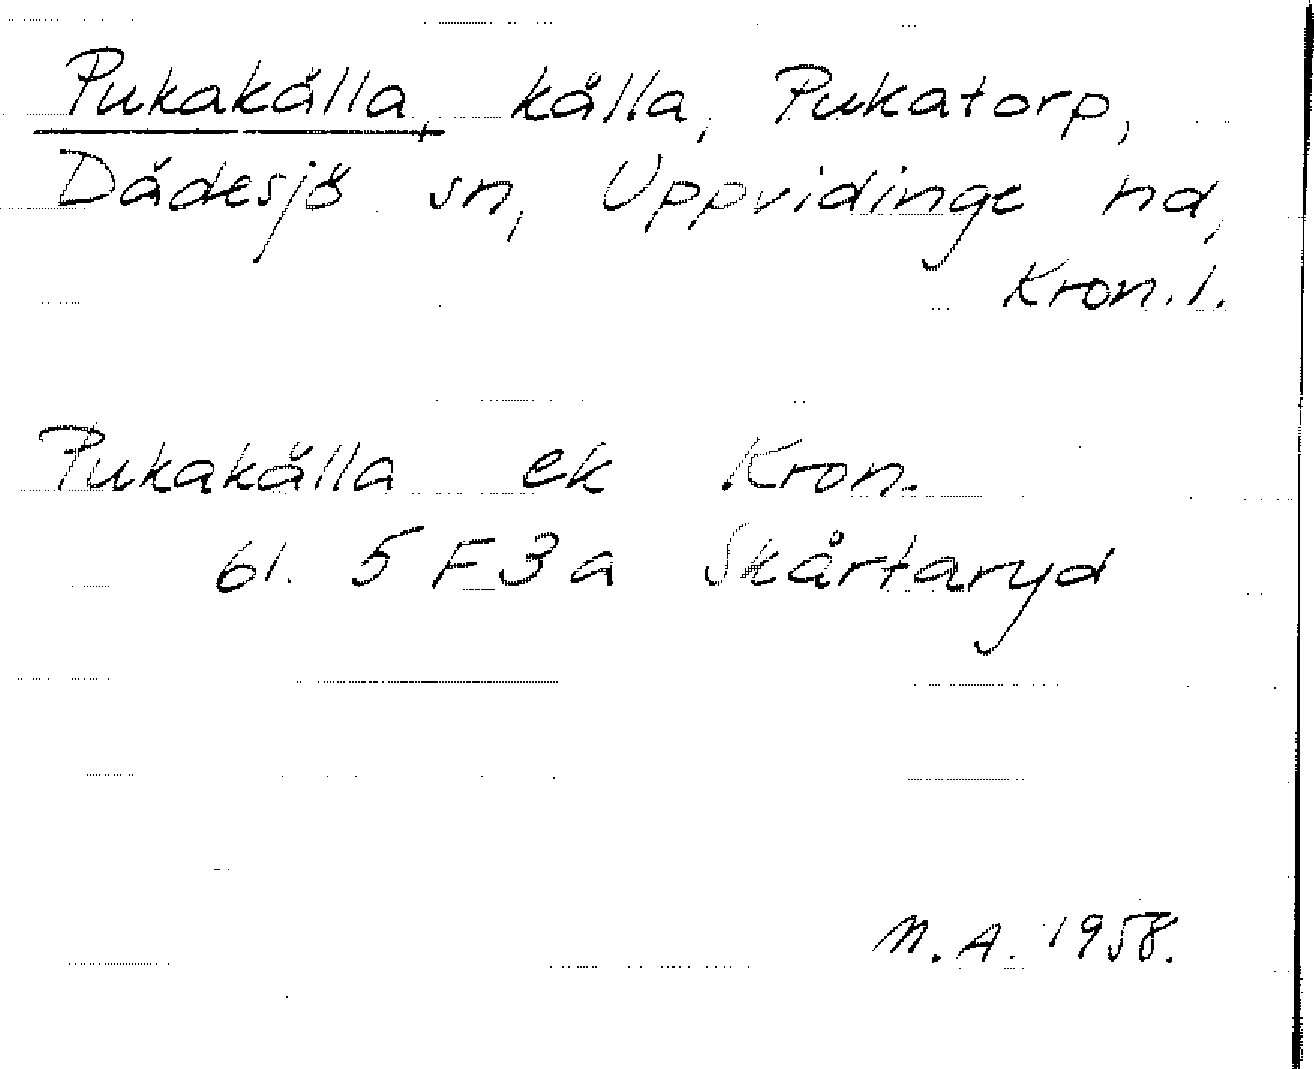 Pukakälla, källa, Pukatorp,
Dädesjö sn, Uppvidinge hd,
Kron. l.
Pukakälla ek Kron.
bl. 5 F 3 a Skårtaryd
M. A. 1958.